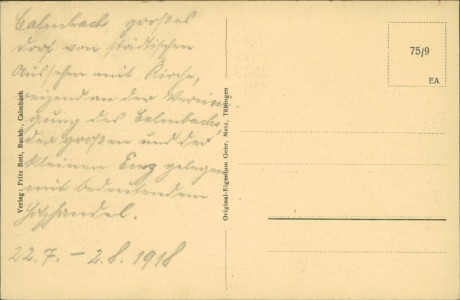 Calmbach großes
Dorf von städtischen
Aussehen mit Kirche,
reizend an der Vereini-
gung des Calmbachs
der großen und der
kleinen Enz gelegen
mit bedeutendem
Holzhandel.
22.7. – 2.8. 1918
Verlag: Fritz Bott, Buchb., Calmbach
Original-Eigentum Gebr. Metz, Tübingen
75/9
EA